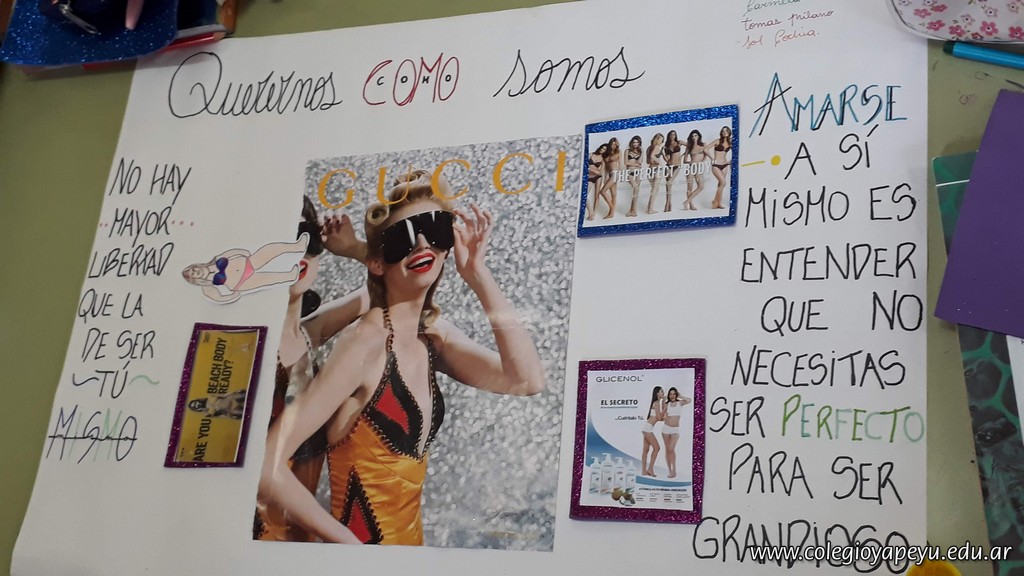 tomas milano
Querernos COMO somos
NO HAY
MAYOR
LIBERTAD
QUE LA
DE SER
TÚ
MISMO
GUCCI
THE PERFECT BODY
ARE YOU BEACH BODY
READY?
GLICENOL
EL SECRETO
AMARSE
A SÍ
MISMO ES
ENTENDER
QUE NO
NECESITAS
SER PERFECTO
PARA SER
GRANDIOSO
www.colegioyapeyu.edu.ar